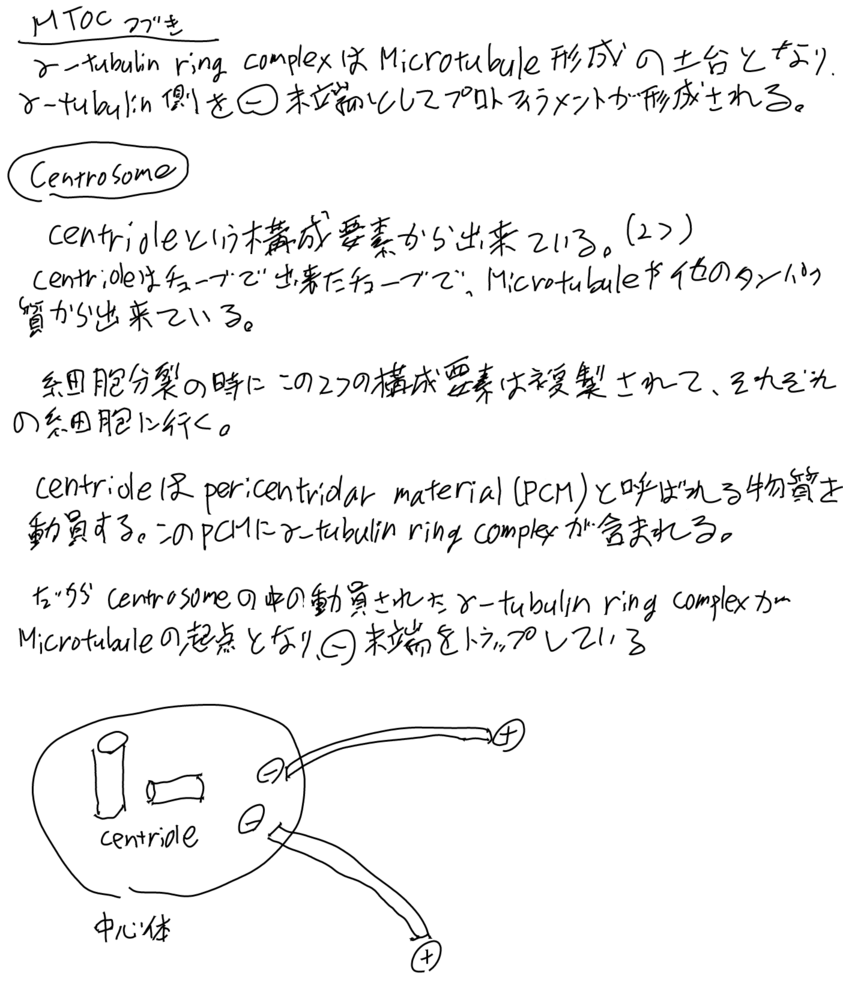 MTOC つづき
γ-tubulin ring complexはMicrotubule 形成の土台となり、
γ-tubulin側を⊖末端としてプロトフィラメントが形成される。
Centrosome
centrioleという構成要素から出来ている。(2つ)
centrioleはチューブで出来たチューブで、Microtubuleや他のタンパク
質から出来ている。
細胞分裂の時にこの2つの構成要素は複製されて、それぞれ
の細胞に行く。
centrioleは pericentriolar material (PCM)と呼ばれる物質を
動員する。このPCMにγ-tubulin ring complexが含まれる。
だから centrosomeの中の動員されたγ-tubulin ring complexが
Microtubuleの起点となり、⊖末端をトラップしている
⊖ ⊕
centriole
⊖
中心体
⊕